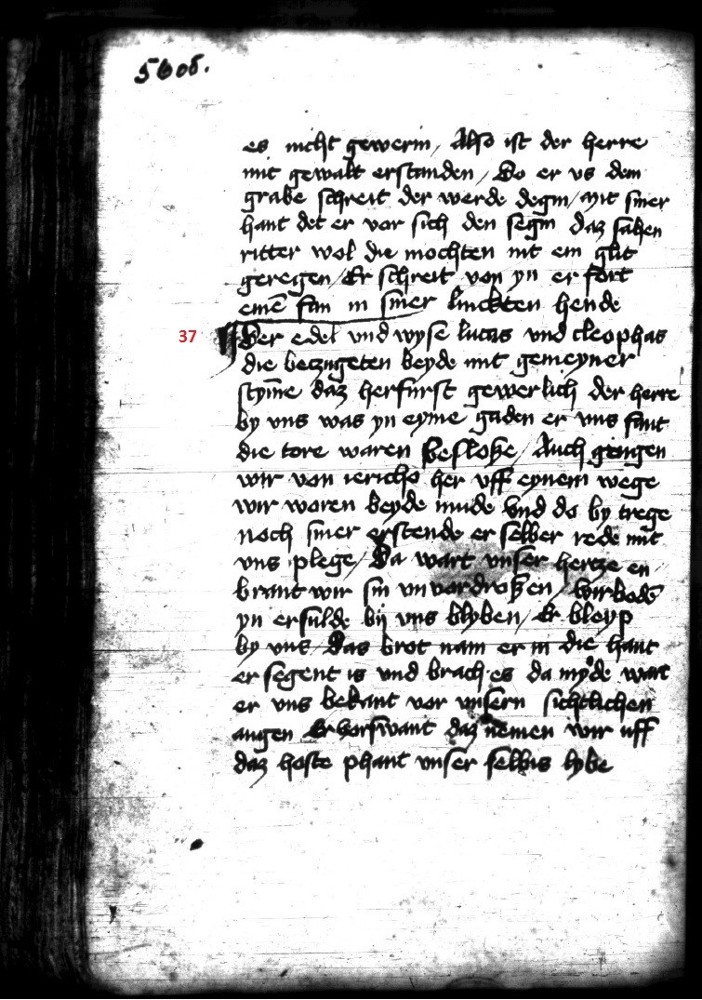 5606.
es nicht gewerin / Also ist der herre
mit gewalt erstanden / Do er vs dem
grabe schreit der werde degin / mit siner
hant det er vor sich den segin daz sahen
ritter wol die mochten nit ein glit
geregen / Er schreit von yn er fort
eine͞ fan in siner linckten hende
37 Der edel vnd wyse lucas vnd cleophas
die betzugeten beyde mit gemeyner
stym̄e daz herfurst gewerlich der herre
by vns was yn eyme gaden er vns fant
die tore waren besloße / Auch gingen
wir von iericho her uff eynem wege
wir woren beyde mude vnd do by trege
noch siner erstende er selber rede mit
vns plege / Da wart vnser hertze en
brant wir sin vnvordroßen / wir bode͞
yn er sulde bij vns blyben / Er bleyp
by vns das brot nam er in die hant
er segent is vnd brach es da myde wart
er vns bekant vor vnsern sichtlichen
augen Er vorswant daz nemen wir uff
daz hoste phant vnser selbis lybe